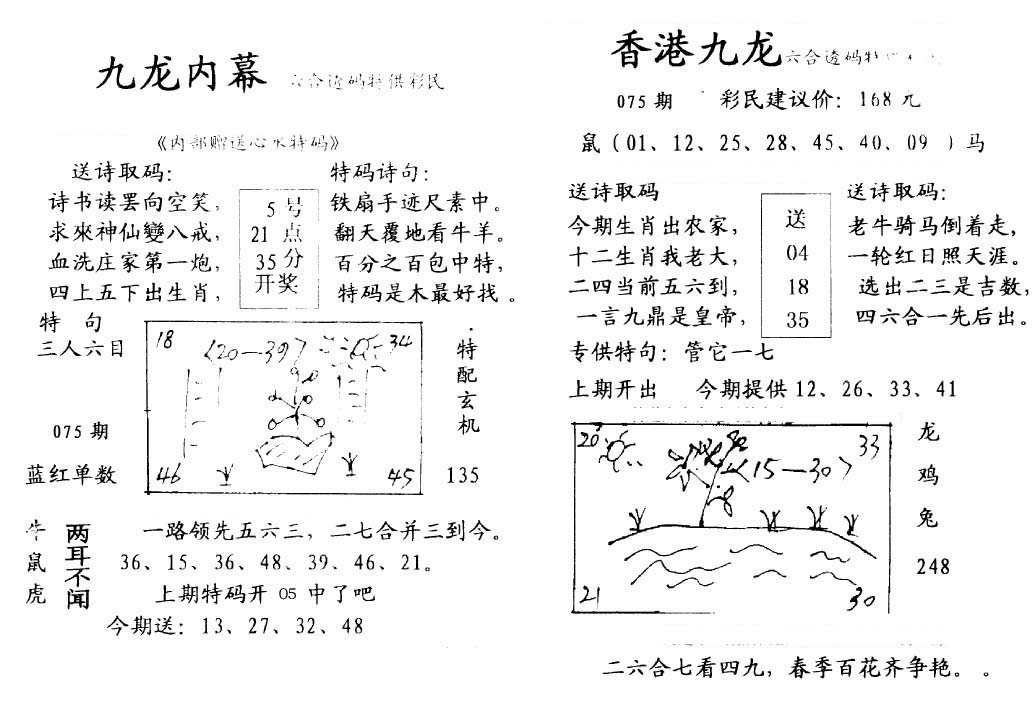 九龙内幕 六合透码特供彩民
《内部赠送心水特码》
送诗取码：
诗书读罢向空笑，
求來神仙變八戒，
血洗庄家第一炮，
四上五下出生肖，
5号
21点
35分
开奖
特码诗句：
铁扇手迹尺素中。
翻天覆地看牛羊。
百分之百包中特，
特码是木最好找。
特 句
三人六目
075期
蓝红单数
18
〈20—39〉
34
46
45
特配玄机
135
牛
鼠
虎
两耳不闻
一路领先五六三，二七合并三到今。
36、15、36、48、39、46、21。
上期特码开 05 中了吧
今期送：13、27、32、48
香港九龙 六合透码特
075期 彩民建议价：168元
鼠（01、12、25、28、45、40、09 ）马
送诗取码
今期生肖出农家，
十二生肖我老大，
二四当前五六到，
一言九鼎是皇帝，
送
04
18
35
送诗取码：
老牛骑马倒着走，
一轮红日照天涯。
选出二三是吉数，
四六合一先后出。
专供特句：管它一七
上期开出 今期提供 12、26、33、41
20
33
〈15—30〉
21
30
龙
鸡
兔
248
二六合七看四九，春季百花齐争艳。。